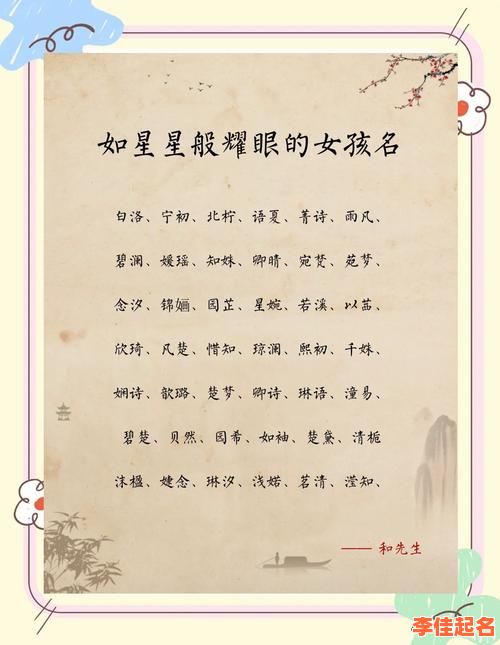 如星星般耀眼的女孩名
白洛、宁初、北柠、语夏、菁诗、雨凡、
碧澜、媛瑶、知姝、卿晴、宛梵、苑梦、
念汐、锦婳、因芷、星婉、若溪、以茜、
欣琦、凡楚、惜知、琼澜、熙初、千姝、
娴诗、歆璐、楚梦、卿诗、琳语、潼易、
碧楚、贝然、因希、如袖、楚黛、清栀
沫楹、婕念、琳汐、浅婼、茗清、滢知、
—— 和先生
李佳起名